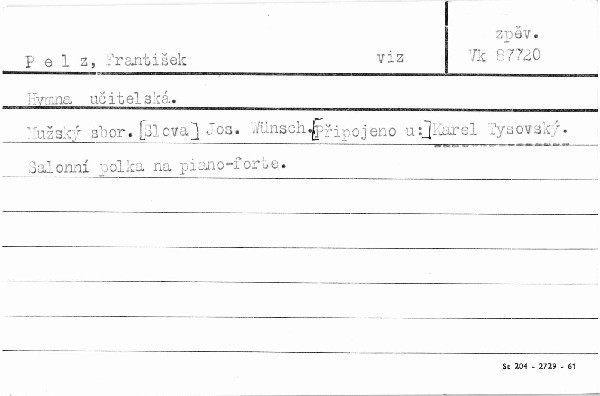 zpěv.
P e l z, František viz Vk 87720
Hymna učitelská.
Mužský sbor. [Slova] Jos. Wünsch. [Připojeno u:] Karel Tysovský.
Salonní polka na piano-forte.
Sc 204 - 2729 - 61